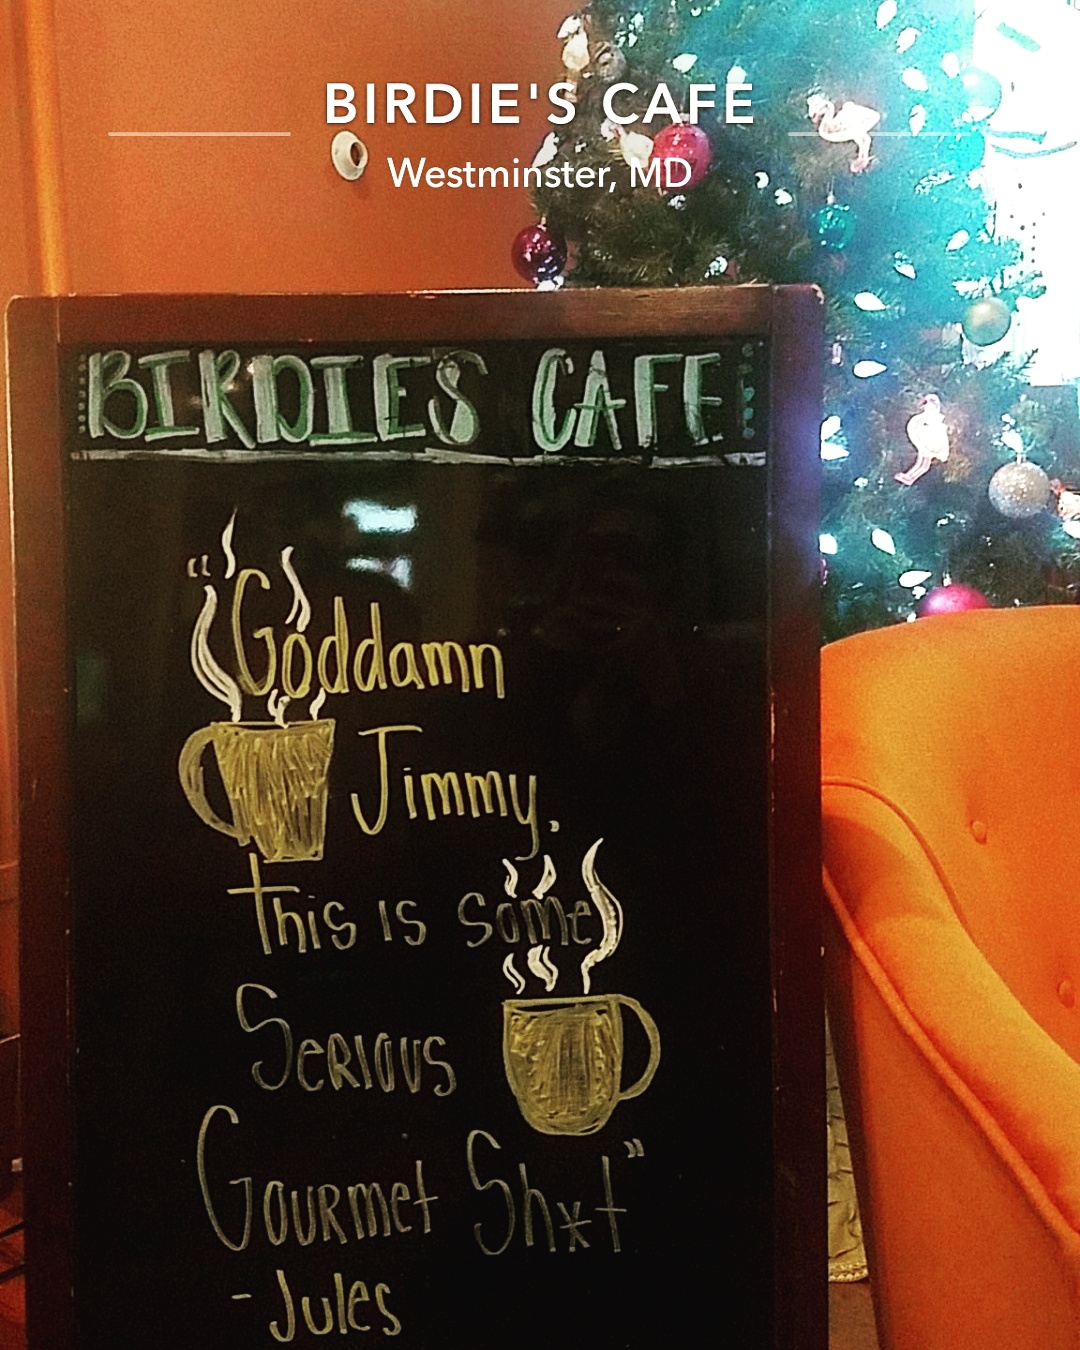 BIRDIE'S CAFE
Westminster, MD
BIRDIE'S CAFE
"Goddamn
Jimmy,
this is some
Serious
Gourmet Sh*t"
-Jules